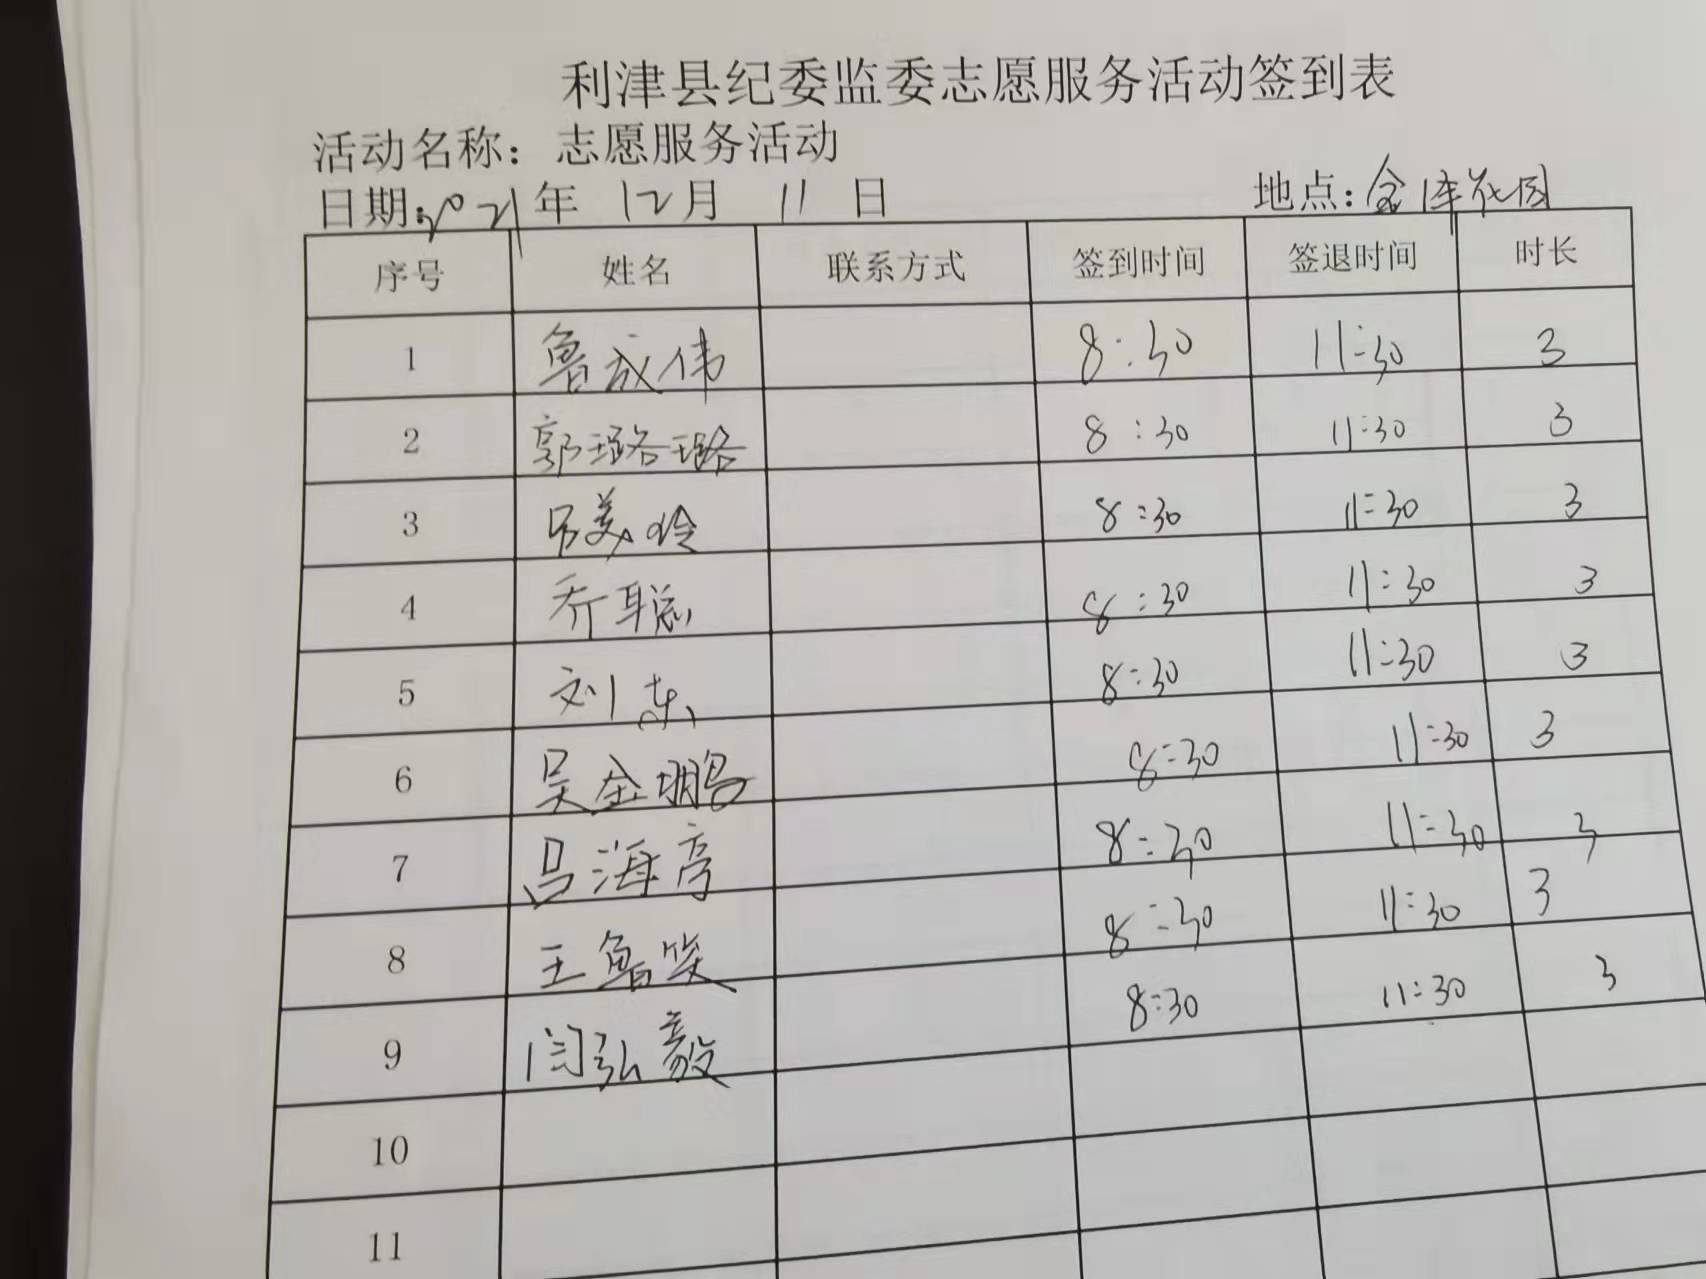 利津县纪委监委志愿服务活动签到表
活动名称：志愿服务活动
日期:2021年 12月 11 日 地点:金津花园
序号 姓名 联系方式 签到时间 签退时间 时长
1 鲁成伟 8:30 11:30 3
2 郭璐璐 8:30 11:30 3
3 美玲 8:30 11:30 3
4 乔聪 8:30 11:30 3
5 刘东 8:30 11:30 3
6 吴金鹏 8:30 11:30 3
7 吕海亭 8:30 11:30 3
8 王鲁笑 8:30 11:30 3
9 闫弘毅 8:30 11:30 3
10
11